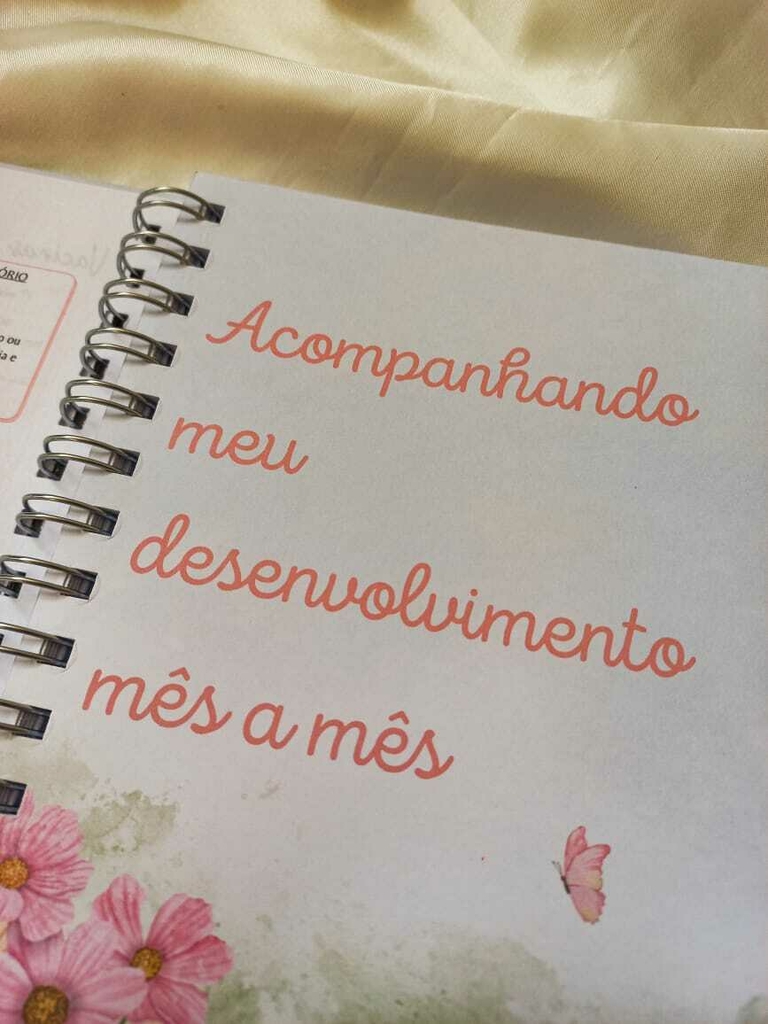 ÓRIO
o ou
ia e
Acompanhando
meu
desenvolvimento
mês a mês